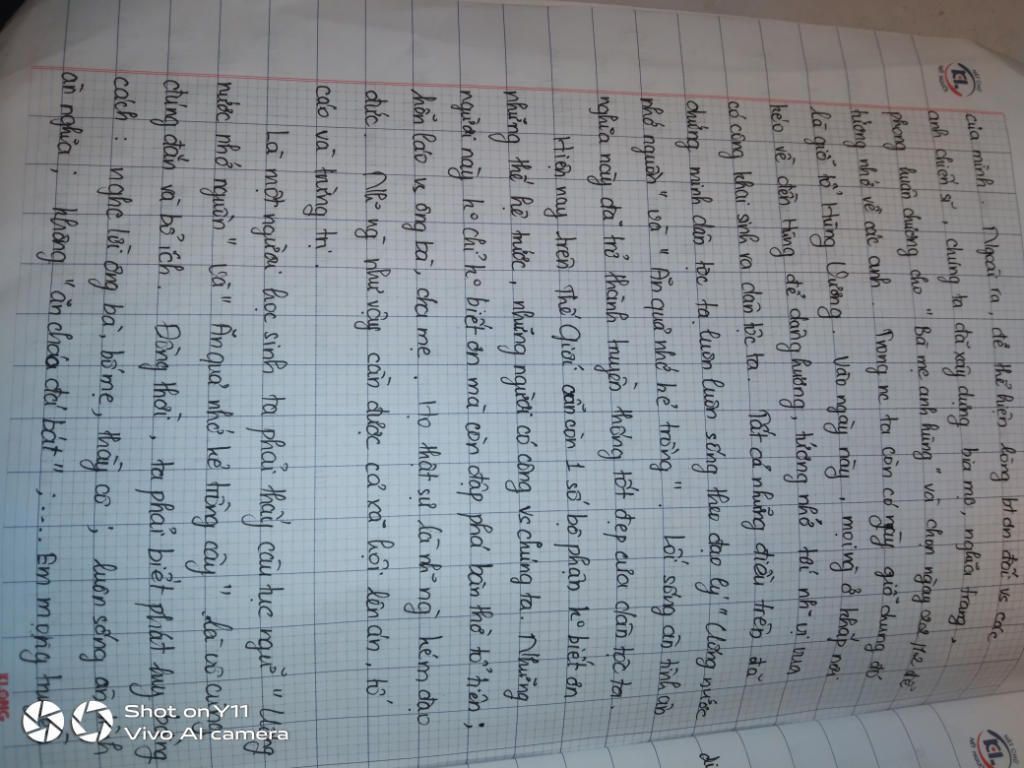 của mình. Ngoài ra, để thể hiện lòng bt ơn đối vs các
anh chiến sĩ, chúng ta đã xây dựng bia mộ, nghĩa trang,
phong huân chương cho "Bà mẹ anh hùng" và chọn ngày 22/12 để
tưởng nhớ về các anh. Trong nc ta còn có ngày giỗ chung đó
là giỗ tổ Hùng Vương. Vào ngày này, mọi ng ở khắp nơi
kéo về đền Hùng để dâng hương, tưởng nhớ tới nh vị vua
có công khai sinh ra dân tộc ta. Tất cả những điều trên đã
chứng minh dân tộc ta luôn luôn sống theo đạo lý "Uống nước
nhớ nguồn" và "Ăn quả nhớ kẻ trồng". Lối sống ân tình ân
nghĩa này đã trở thành truyền thống tốt đẹp của dân tộc ta.
Hiện nay trên Thế Giới vẫn còn 1 số bộ phận ko biết ơn
những thế hệ trước, những người có công vs chúng ta. Những
người này ko chỉ ko biết ơn mà còn đập phá bàn thờ tổ tiên;
hỗn láo vs ông bà, cha mẹ. Họ thật sự là những ng kém đạo
đức. Những ng như vậy cần được cả xã hội lên án, tố
cáo và trừng trị.
Là một người học sinh ta phải thấy câu tục ngữ "Uống
nước nhớ nguồn" và "Ăn quả nhớ kẻ trồng cây" là vô cùng
đúng đắn và bổ ích. Đồng thời, ta phải biết phát huy bằng
cách: nghe lời ông bà, bố mẹ, thầy cô; luôn sống ân
ân nghĩa; không "ăn cháo đá bát";.... Em mong
Shot on Y11
Vivo AI camera